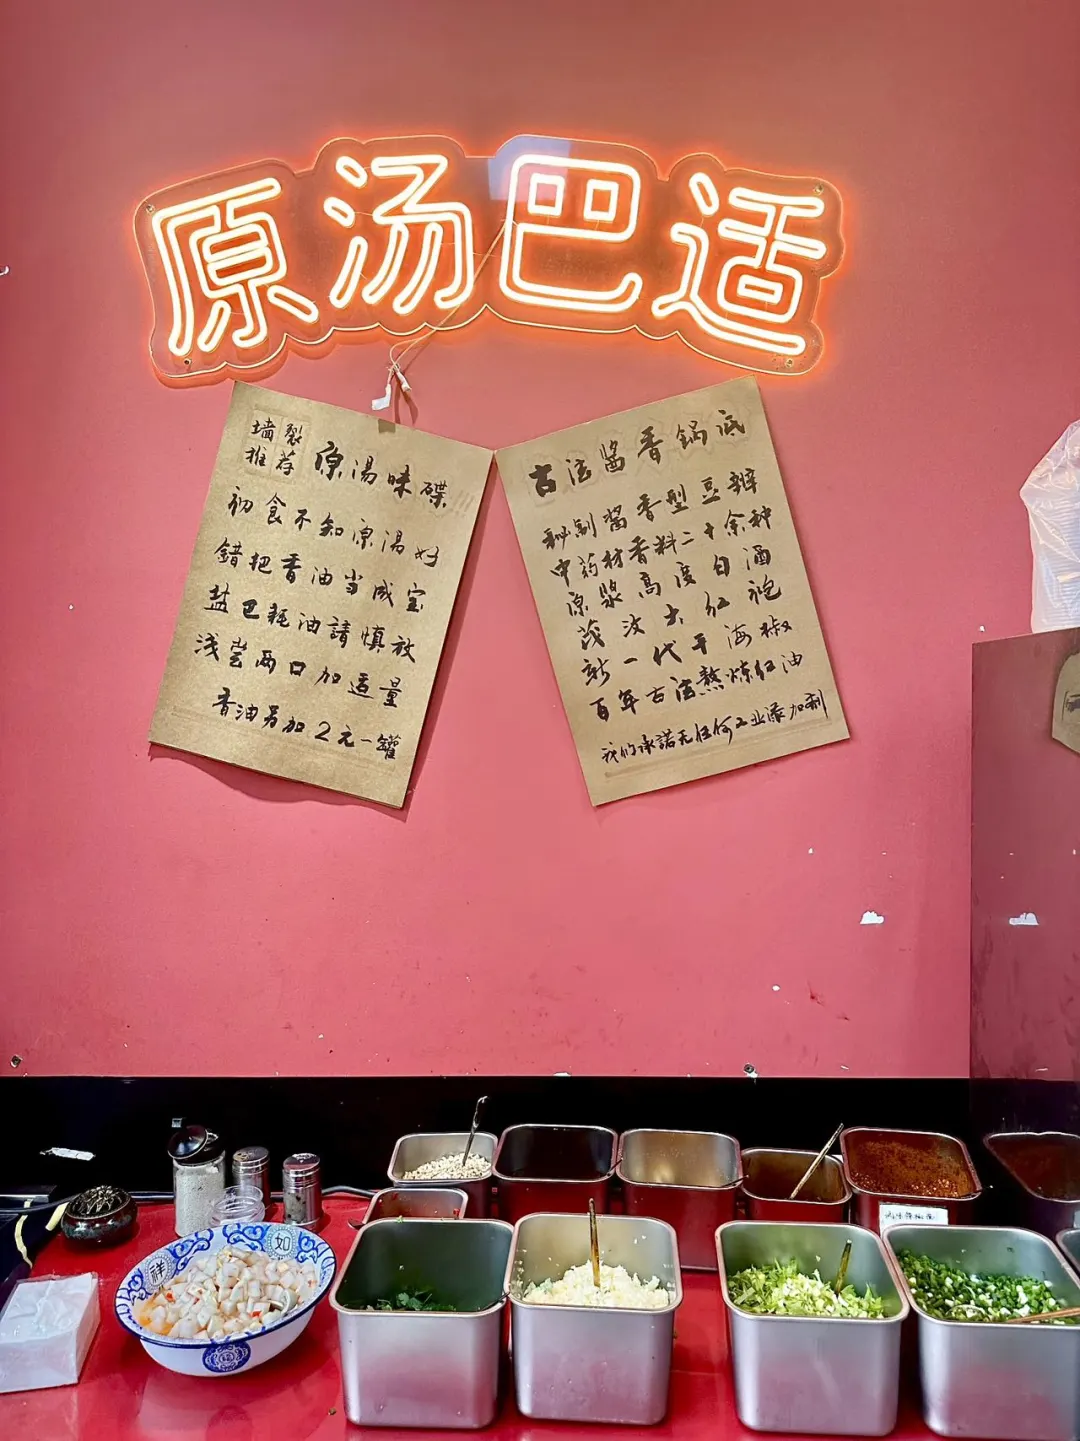 原汤巴适
墙裂
推荐
原湯味碟!!!
初食不知原湯好
錯把香油当成宝
盐巴耗油請慎放
浅尝两口加适量
香油另加2元一罐
古法酱香锅底
秘制酱香型豆瓣
中药材香料二十余种
原浆高度白酒
茂汶大红袍
新一代干海椒
百年古法熬炼红油
我们承諾无任何工业添加剂
祥
如